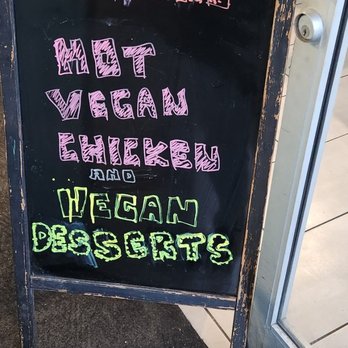 HOT
VEGAN
CHICKEN
AND
VEGAN
DESSERTS